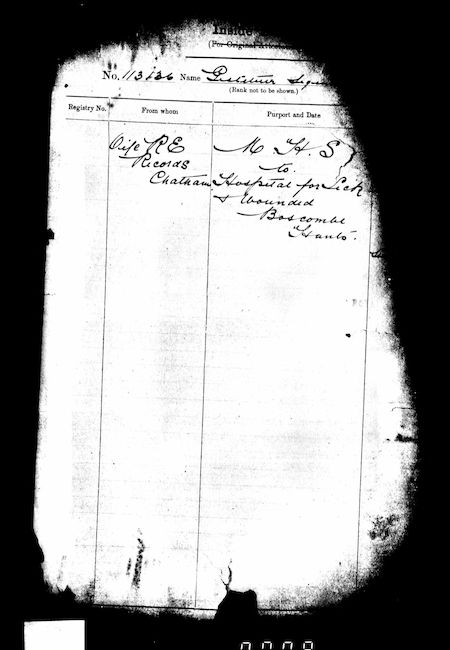 Inside
(For Original
No. 113636 Name
(Rank not to be shown.)
Registry No. From whom Purport and Date
O i/c R E M H. S
Records to.
Chatham Hospital for Sick
& Wounded
Boscombe
Hants.